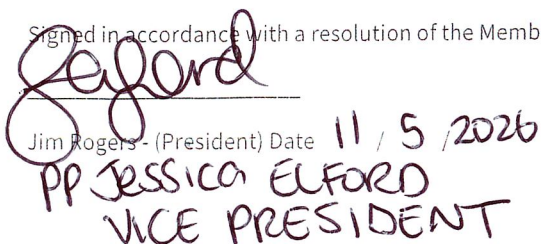 Signed in accordance with a resolution of the Memb
Jim Rogers - (President) Date 11 / 5 / 2026
PP JESSICA ELFORD
VICE PRESIDENT